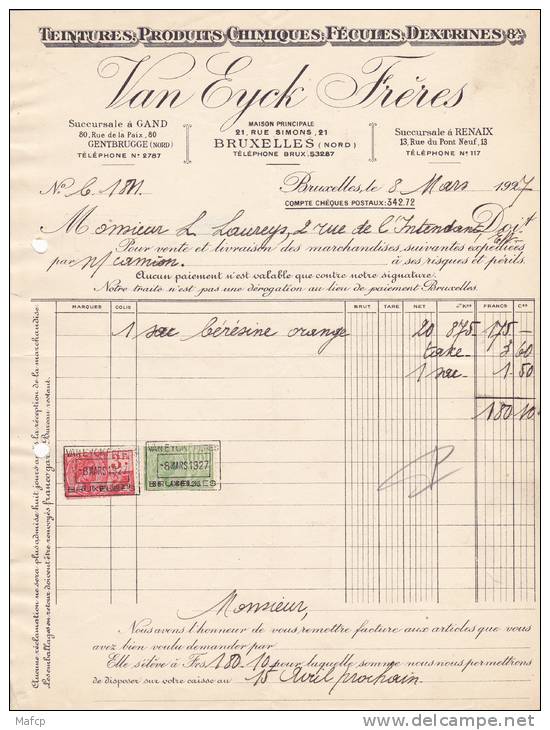 TEINTURES, PRODUITS CHIMIQUES, FÉCULES, DEXTRINES &ª
Van Eyck Frères
Succursale à GAND
80, Rue de la Paix, 80
GENTBRUGGE (NORD)
TÉLÉPHONE Nº 2787
MAISON PRINCIPALE
21, RUE SIMONS, 21
BRUXELLES (NORD)
TÉLÉPHONE BRUX. 53287
Succursale à RENAIX
13, Rue du Pont Neuf, 13
TÉLÉPHONE Nº 117
Nº C. 1811.
Bruxelles, le 8 Mars 1927
COMPTE CHÈQUES POSTAUX: 342.72
Monsieur L. Laureys, 2 rue de l'Intendant Doit
Pour vente et livraison des marchandises, suivantes expédiées
par n/ camion. à ses risques et périls.
Aucun paiement n'est valable que contre notre signature.
Notre traite n'est pas une dérogation au lieu de paiement Bruxelles.
MARQUES COLIS BRUT TARE NET FRANCS
1 sac Cérésine orange 20 875 175 -
taxe 3 60
1 sac 1.50
180 10
VAN EYCK FRÈRES
-8 MARS 1927
BRUXELLES
VAN EYCK FRÈRES
-8 MARS 1927
BRUXELLES
Aucune réclamation ne sera plus admise huit jours après la réception de la marchandise.
Les emballages en retour doivent être renvoyés franco gare Bureau restant.
Monsieur,
Nous avons l'honneur de vous remettre facture aux articles que vous
avez bien voulu demander par
Elle s'élève à Frs 180-10 pour laquelle somme nous nous permettrons
de disposer sur votre caisse au 15 Avril prochain.
Mafcp
www.delcampe.net